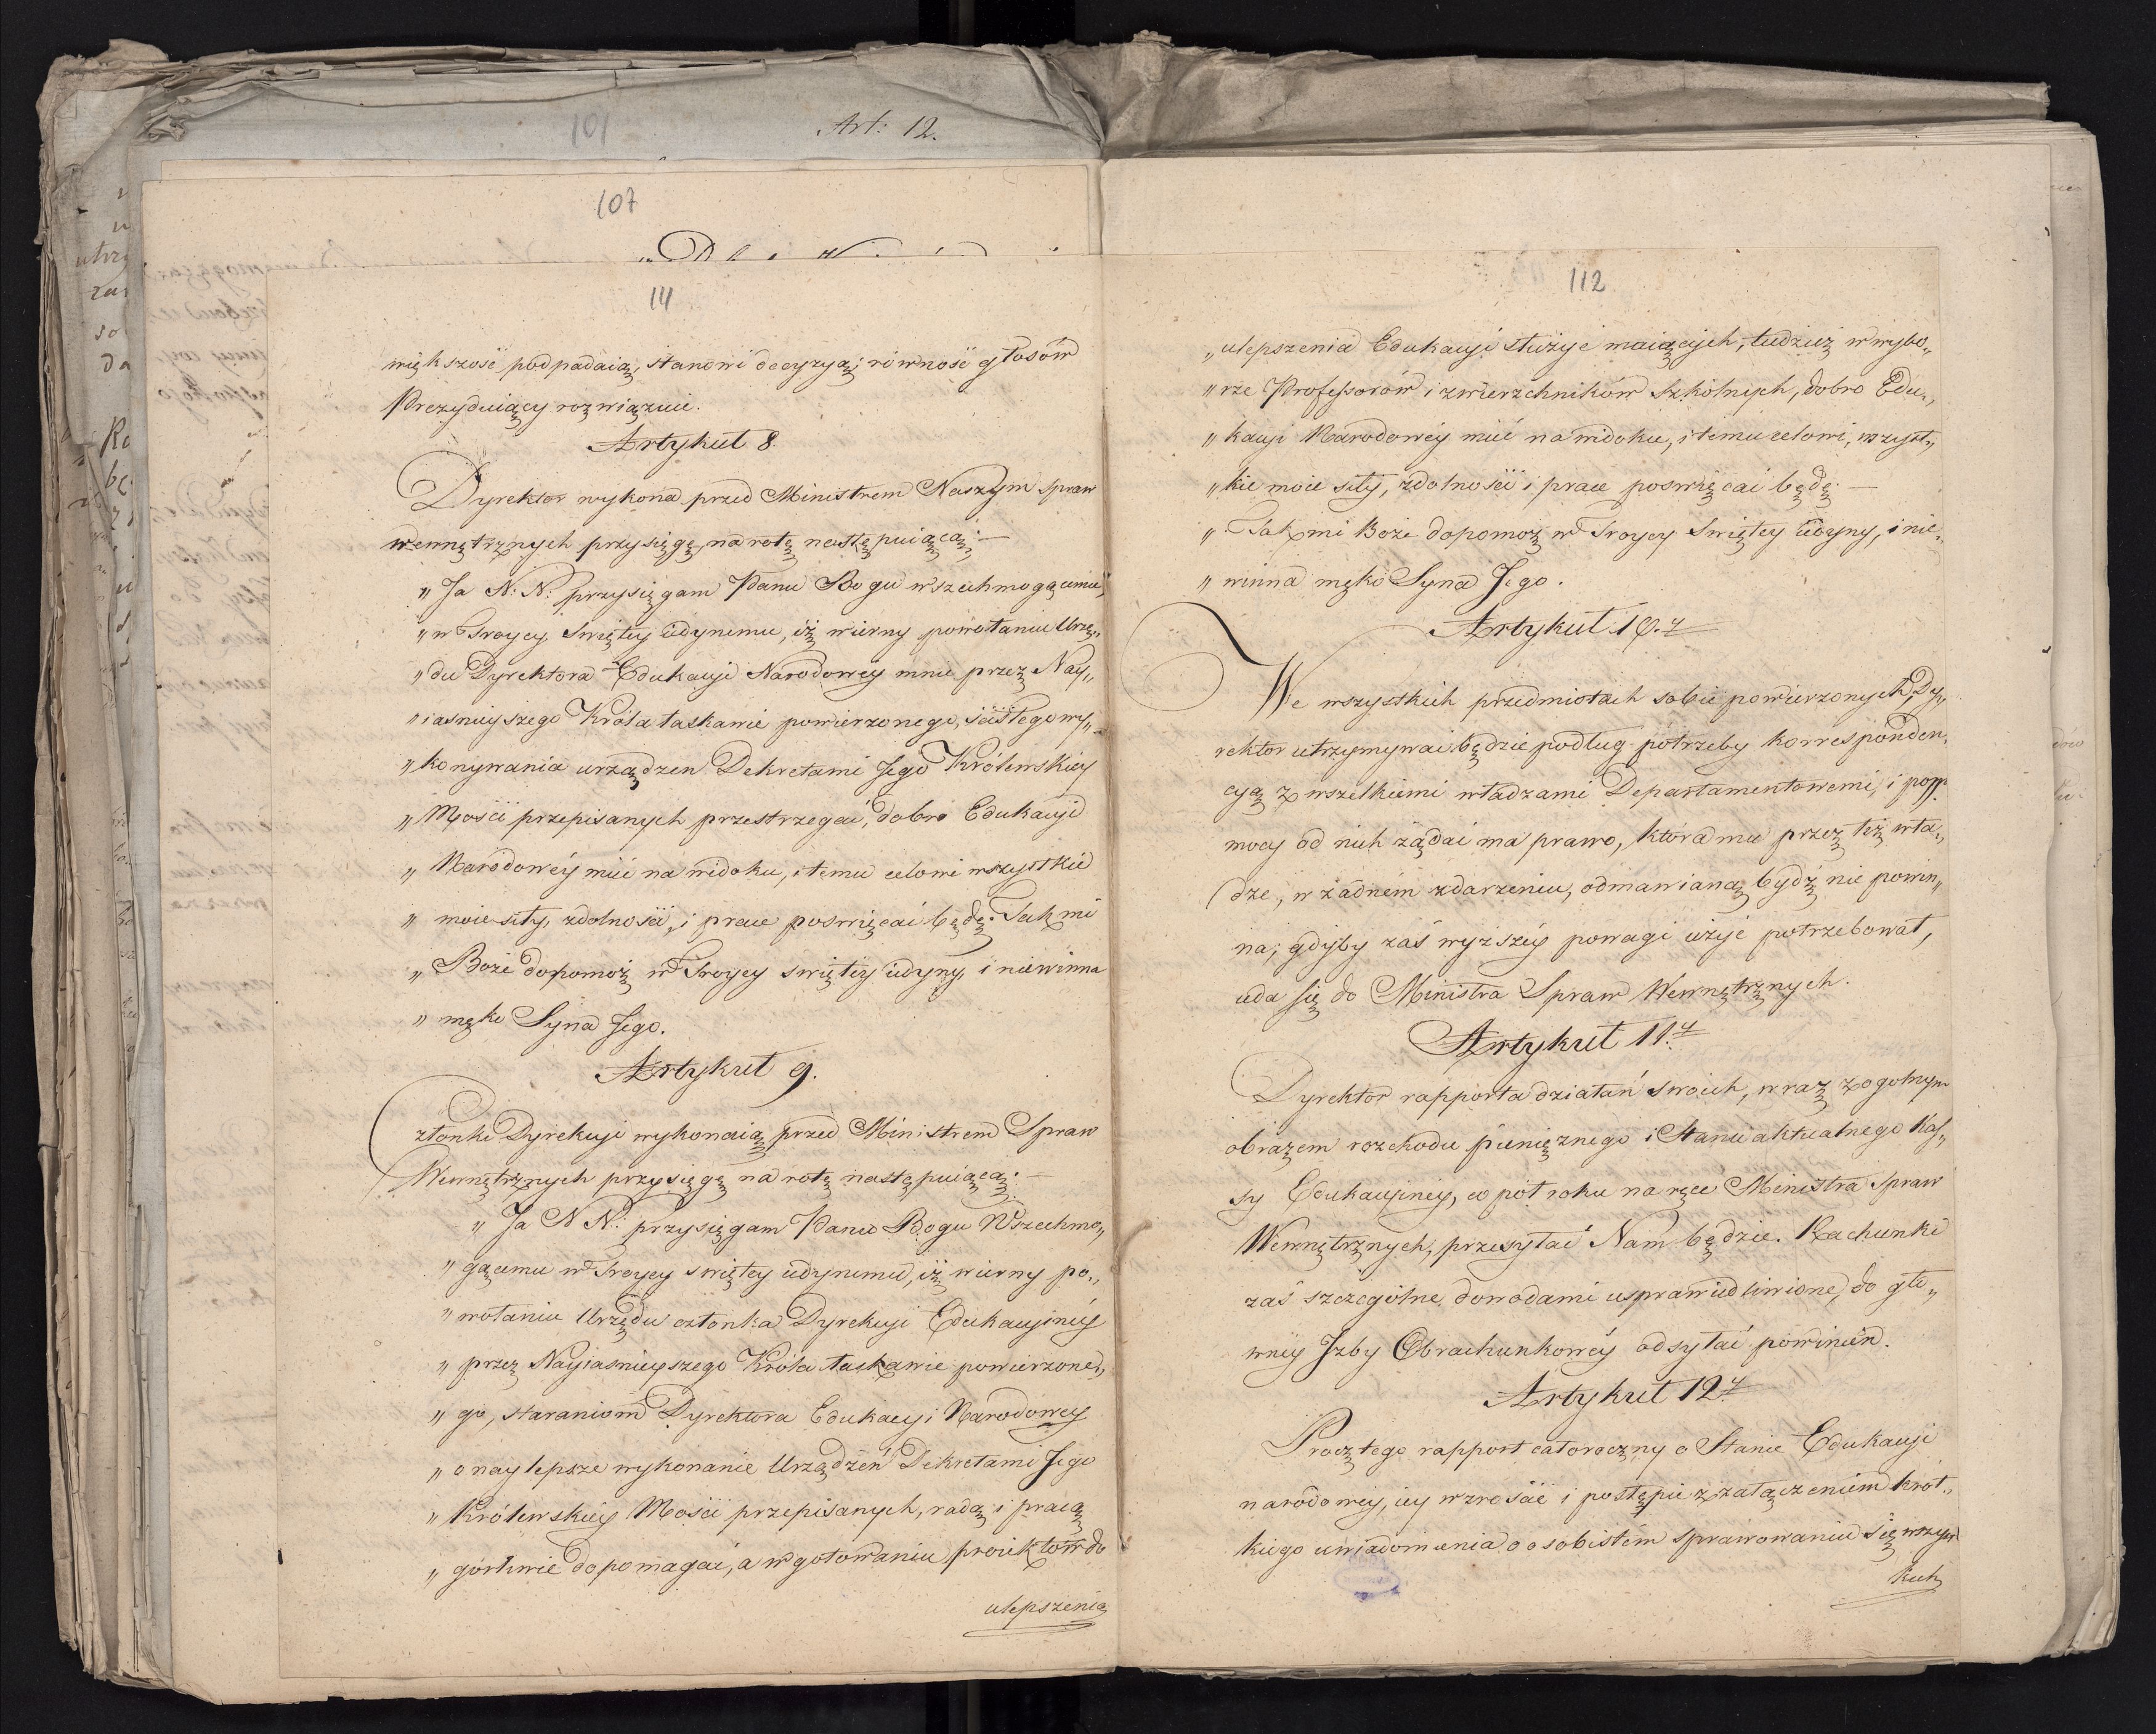 101
Art: 12.
107
111
większość podpadaią, stanowi decyzyą; równość głosów
Prezyduiący rozwiązuie.
Artykuł 8.
Dyrektor wykona przed Ministrem Naszym Spraw
wewnętrznych przysięgę, na rotę następuiącą: —
„ Ja N: N: przysięgam Panu Bogu wszechmogącemu,
„ w Troycy Swiętey iedynemu, iż wierny powołaniu Urzę„
„ du Dyrektora Edukacyi Narodowéy mnie przez Nay„
„ iasnieyszego Króla łaskawie powierzonego, ścisłego wy„
„ konywania urządzen Dekretami Jego Królewskiey
„ Mości przepisanych przestrzegać, dobro Edukacyi
„ Narodowéy mieć na widoku, i temu celowi wszystkie
„ moie siły, zdolności, i prace poswięcać będę. Tak mi
„ Boże dopomoż w Troycy swiętey iedyny, i niewinna
„ męko Syna Jego.
Artykuł 9.
Członki Dyrekcyi wykonaią przed Ministrem Spraw
Wewnętrznych przysięgę na rotę następuiącą: —
„ Ja N N: przysięgam Panu Bogu Wszechmo„
„ gącemu w Troycy swiętey iedynemu, iż wierny po„
„ wołaniu Urzędu członka Dyrekcyi Edukacyinéy
„ przez Nayiasnieyszego Króla łaskawie powierzone„
„ go, staraniom Dyrektora Edukacyi Narodowey
„ o naylepsze wykonanie Urządzeń Dekretami Jego
„ Królewskiey Mości przepisanych, radą i pracą
„ gorliwie dopomagać, a w gotowaniu proiektów do
ulepszenia
112
„ ulepszenia Edukacyi służyć maiących, tudzież w wybo„
„ rze Professorów i zwierzchników Szkolnych, dobro Edu„
„ kacyi Narodowéy mieć na widoku, i temu celowi, wszyst„
„ kie moie siły, zdolności i prace poswięcać będę. —
„ Tak mi Boże dopomoż w Troycy Swiętey iedyny, i nie„
„ winna męko Syna Jego.
Artykuł 10.y
We wszystkich przedmiotach sobie powierzonych, Dy„
rektor utrzymywać będzie podług potrzeby korresponden„
cyą z wszelkiemi władzami Departamentowemi, i po„
mocy od nich żądać ma prawo, która mu przez też wła„
dze, w żadném zdarzeniu, odmawianą bydź nie powin„
na; gdyby zaś wyższéy powagi użyć potrzebował,
uda się do Ministra Spraw Wewnętrznych.
Artykuł 11.y
Dyrektor rapporta działań swoich, wraz z ogolnym
obrazem rozchodu pieniężnego i Stanu aktualnego Kas„
sy Edukacyiney, co pół roku na ręce Ministra Spraw
Wewnętrznych, przesyłać Nam będzie. Rachunki
zaś szczególne, dowodami usprawiedliwione, do głó„
wnéy Izby Obrachunkowéy odsyłać powinien.
Artykuł 12.y
Procz tego rapport całoroczny o Stanie Edukacyi
narodowéy, iey wzroście i postępie z załączeniem krót„
kiego uwiadomienia o osobistém sprawowaniu się wszyst„
kich